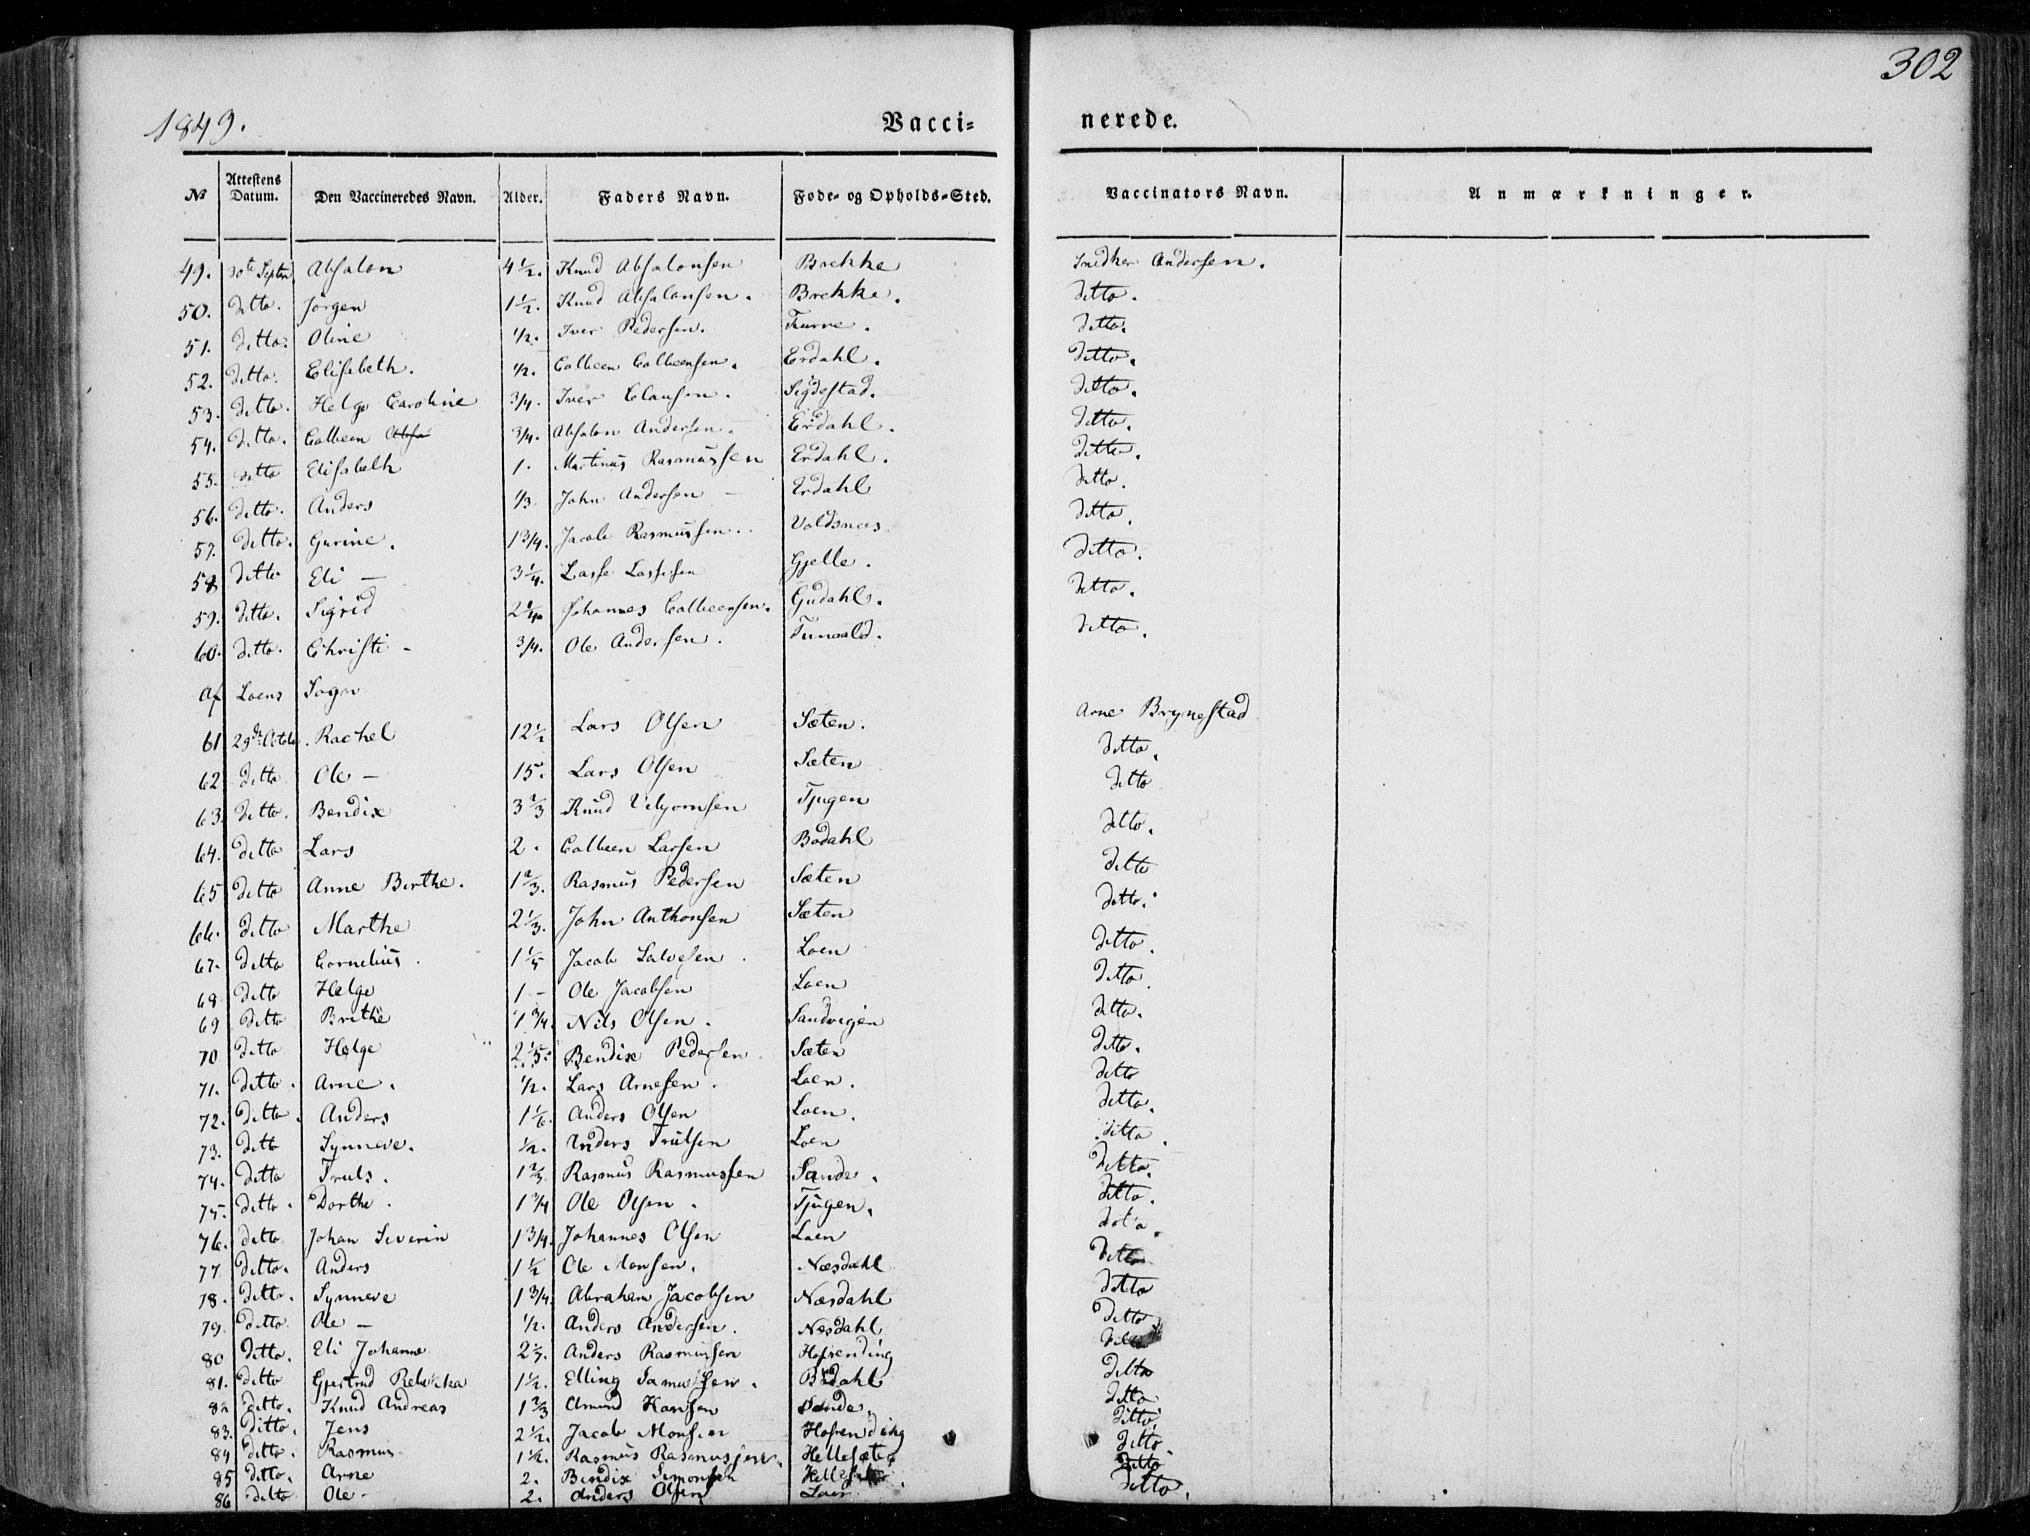 302
1849. Vacci= nerede.
No Attestens Datum. Den Vaccineredes Navn. Alder. Faders Navn. Føde- og Opholds-Sted. Vaccinators Navn. Anmærkninger.
49. 30te Septbr Absalon 4 1/2. Knud Absalonsen Brekke Andersen.
50. ditto. Jörgen 1 1/2. Knud Absalonsen. Brekke. ditto.
51. ditto. Oline 1/2. Iver Pedersen. ditto.
52. ditto. Elisabeth. 1/2. Colbeen Colbeensen. Erdahl. ditto.
53. ditto. Helge Caroline 3/4. Iver Clausen. Sigdestad. ditto.
54. ditto. Colbeen 3/4. Absalon Andersen. Erdahl. ditto.
55. ditto Elisabeth 1. Martinus Rasmussen Erdahl. ditto.
56. ditto. Anders 1/3. John Andersen — Erdahl ditto.
57. ditto. Gurine. 1 3/4. Jacob Rasmussen. Voldsnes ditto.
58 ditto Eli — 3 1/4. Lasse Lassesen Gjelle. ditto.
59. ditto. Sigrid Johannes Colbeensen. Gudahl. ditto.
60. ditto. Christi - 3/4. Ole Andersen. Tunaald. ditto.
Af Loens Sogn
61 29de Octob. Rachel 12 1/2 Lars Olsen Sæten. Arne Brynestad
62 ditto Ole — 15. Lars Olsen Sæten ditto.
63. ditto. Bendix 3 2/3 Knud Tjugen ditto
64. ditto Lars 2. Colbeen Larsen Bødahl ditto.
65 ditto Anne Birthe. 1 2/3. Rasmus Pedersen Sæten ditto
66. ditto Marthe 2 1/3. John Anthonsen Sæten ditto.
67. ditto Cornelius. 1 1/5 Jacob Salvesen. Loen ditto.
68 ditto Helge 1 - Ole Jacobsen Loen ditto.
69 ditto Brithe 1 3/4. Nils Olsen. Sandvigen ditto.
70 ditto Helge 2 1/5. Bendix Pedersen. Sæten ditto.
71. ditto. Arne. 1/2. Lars Arnesen. Loen. ditto
72. ditto. Anders 1 1/6. Anders Olsen Loen. ditto.
73. ditto Synneve. 1/2. Anders Trulsen Loen ditto.
74. ditto Truls. 1 2/3. Rasmus Rasmussen Sande. ditto.
75. ditto. Dorthe. 1 3/4 Ole Olsen. Tjugen. ditto.
76. ditto Johan Severin 1 3/4. Johannes Olsen Loen ditto.
77 ditto. Anders 1 1/2 Ole Monsen. Næsdahl ditto
78. ditto. Synneve 1 3/4. Abraham Jacobsen Næsdahl ditto
79. ditto. Ole — 1/2. Anders Andersen. Næsdahl ditto
80 ditto. Eli Johanne Anders Rasmussen Hofrending
81. ditto Gjertrud Rebekka 1 1/2. Elling Samuelsen. Bødahl ditto
82 ditto. Knud Andreas 1 2/3 Amund Hansen Sande. ditto
83. ditto. Jens 2 1/2. Jacob Monsen Hofrending ditto
84 ditto. Rasmus 1 1/2. Rasmus Rasmussen. Hellesæter ditto.
85 ditto. Arne 2. Bendix Simonsen ditto
86 ditto Ole - 2. Anders Olsen Loen ditto.